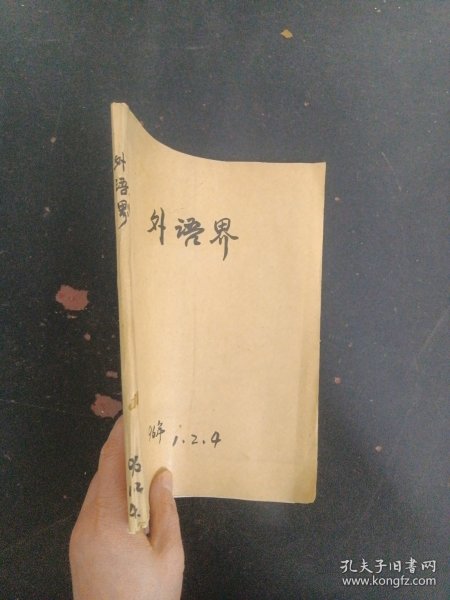 外语界
外语界
96年 1.2.4
96
1.2
4.
孔夫子旧书网
www.kongfz.com